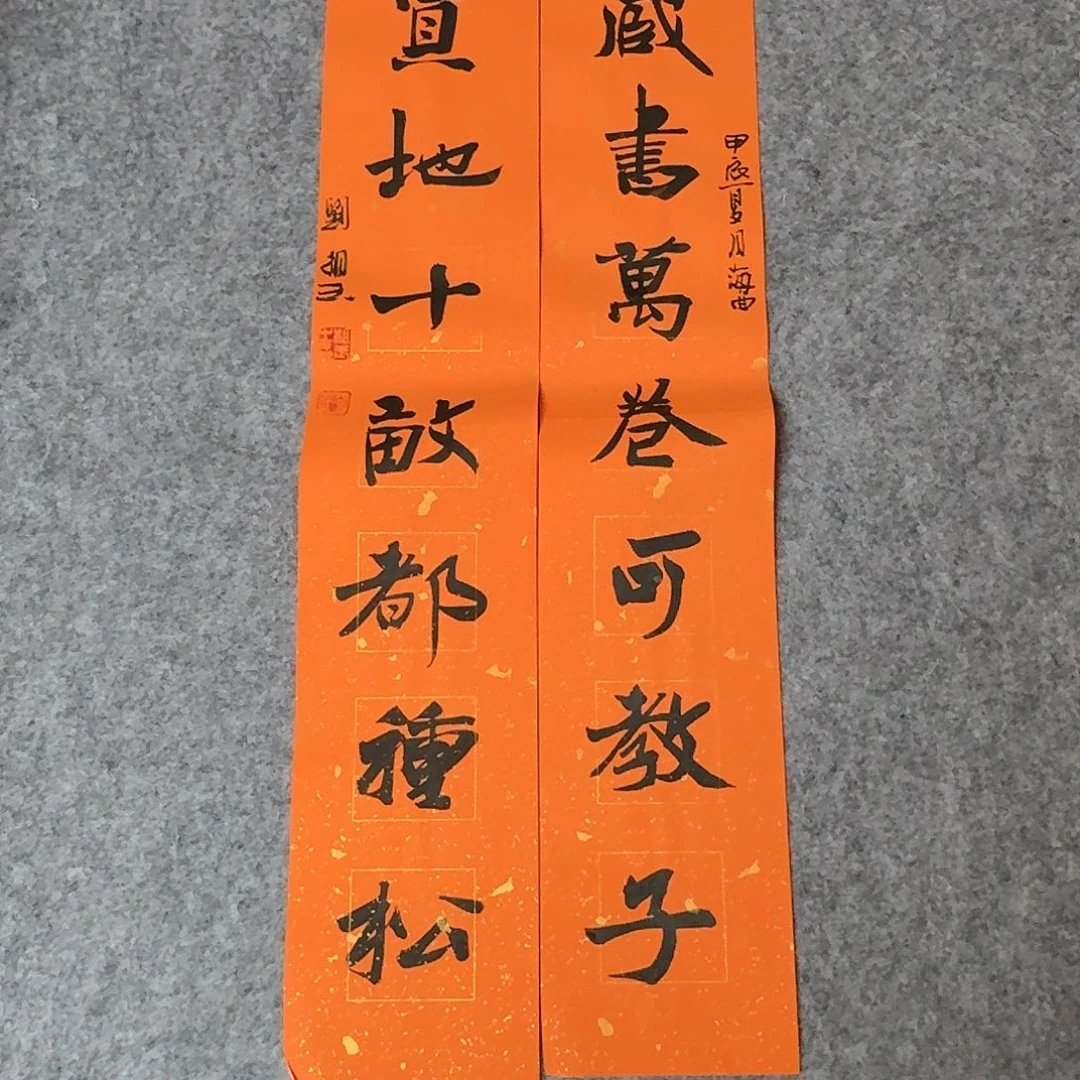 藏書萬卷可教子
甲辰夏月海曲
置地十畝都種松
劉